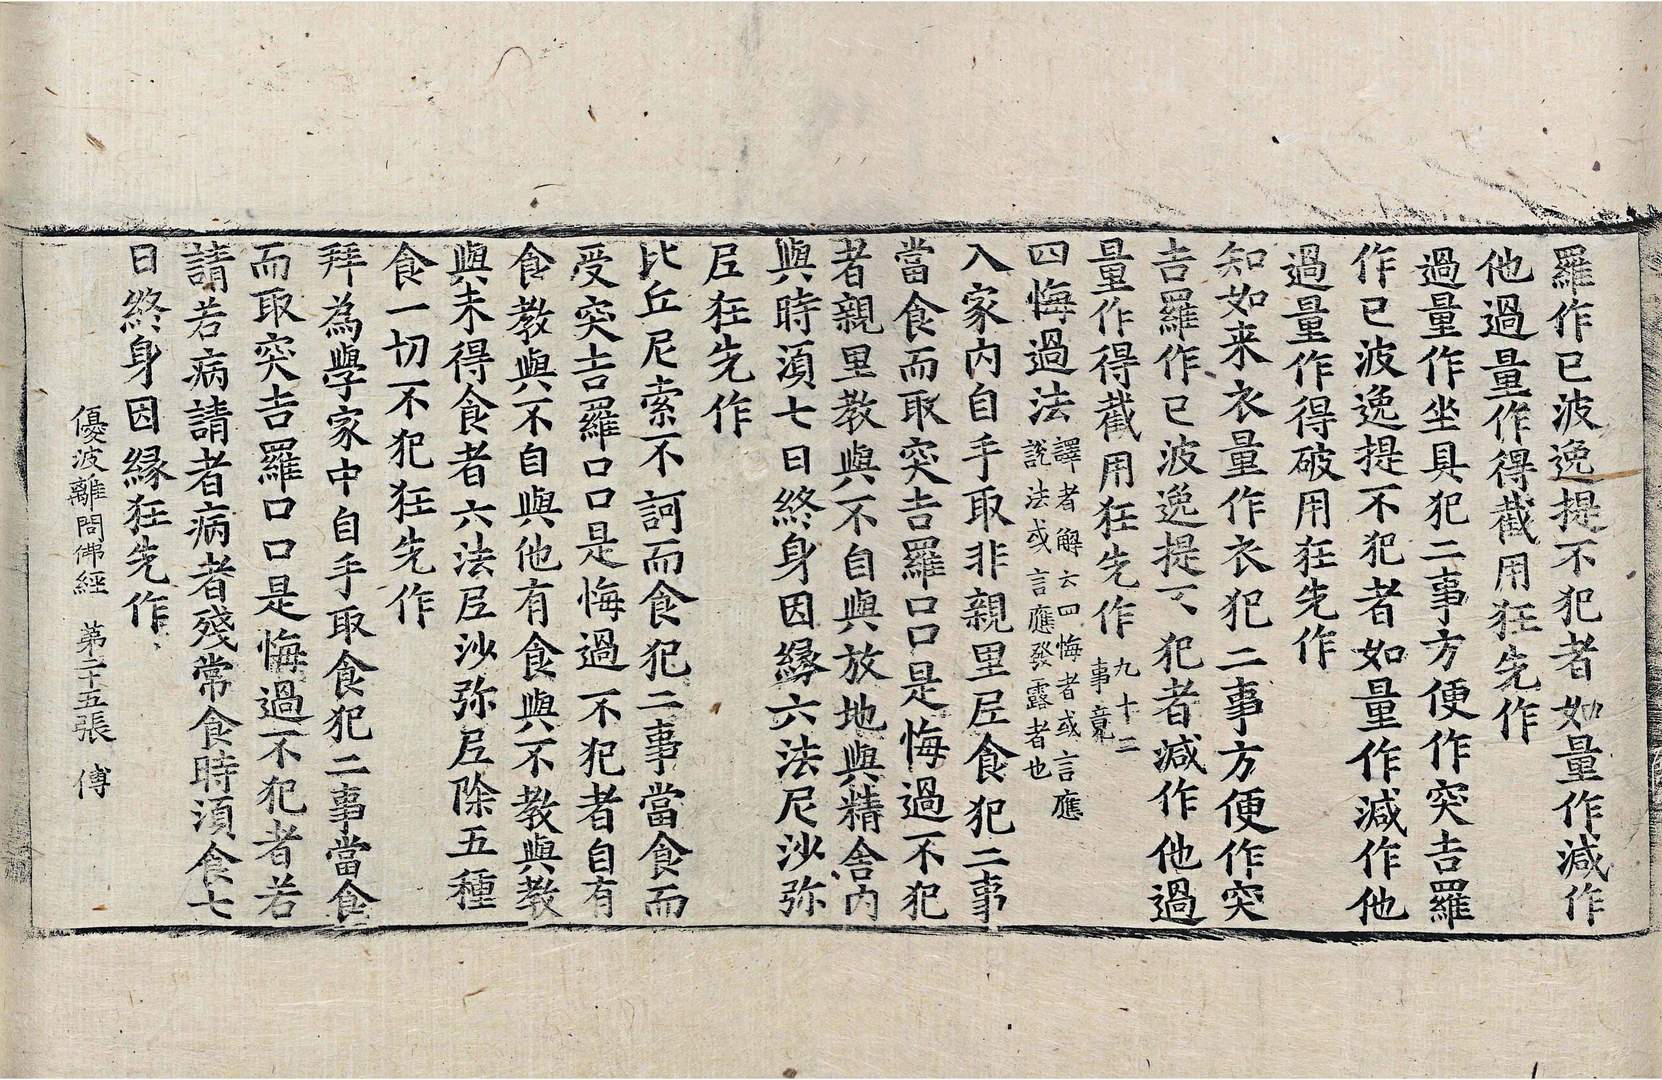 羅作已波逸提不犯者如量作減作
他過量作得截用狂先作
過量作坐具犯二事方便作突吉羅
作已波逸提不犯者如量作減作他
過量作得破用狂先作
知如来衣量作衣犯二事方便作突
吉羅作已波逸提不犯者減作他過
量作得截用狂先作 九十二事竟
四悔過法 譯者解云四悔者或言應說法或言應發露者也
入家内自手取非親里尼食犯二事
當食而取突吉羅口口是悔過不犯
者親里教與不自與放地與精舍内
與時湏七日終身因縁六法尼沙弥
尼狂先作
比丘尼索不訶而食犯二事當食而
受突吉羅口口是悔過不犯者自有
食教與不自與他有食與不教與教
與未得食者六法尼沙弥尼除五種
食一切不犯狂先作
拜為學家中自手取食犯二事當食
而取突吉羅口口是悔過不犯者若
請若病請者病者殘常食時湏食七
日終身因縁狂先作
優波離問佛經 第二十五張 傅